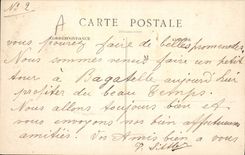 N° 2
A
CARTE POSTALE
CORRESPONDANCE
vous pouvez faire de belles promenades
Nous sommes venus faire un petit
tour à Bagatelle aujourd'hui
profiter du beau temps.
Nous allons toujours bien et
vous envoyons nos bien affectueuses
amitiés. Vos Amis bien à vous
P.